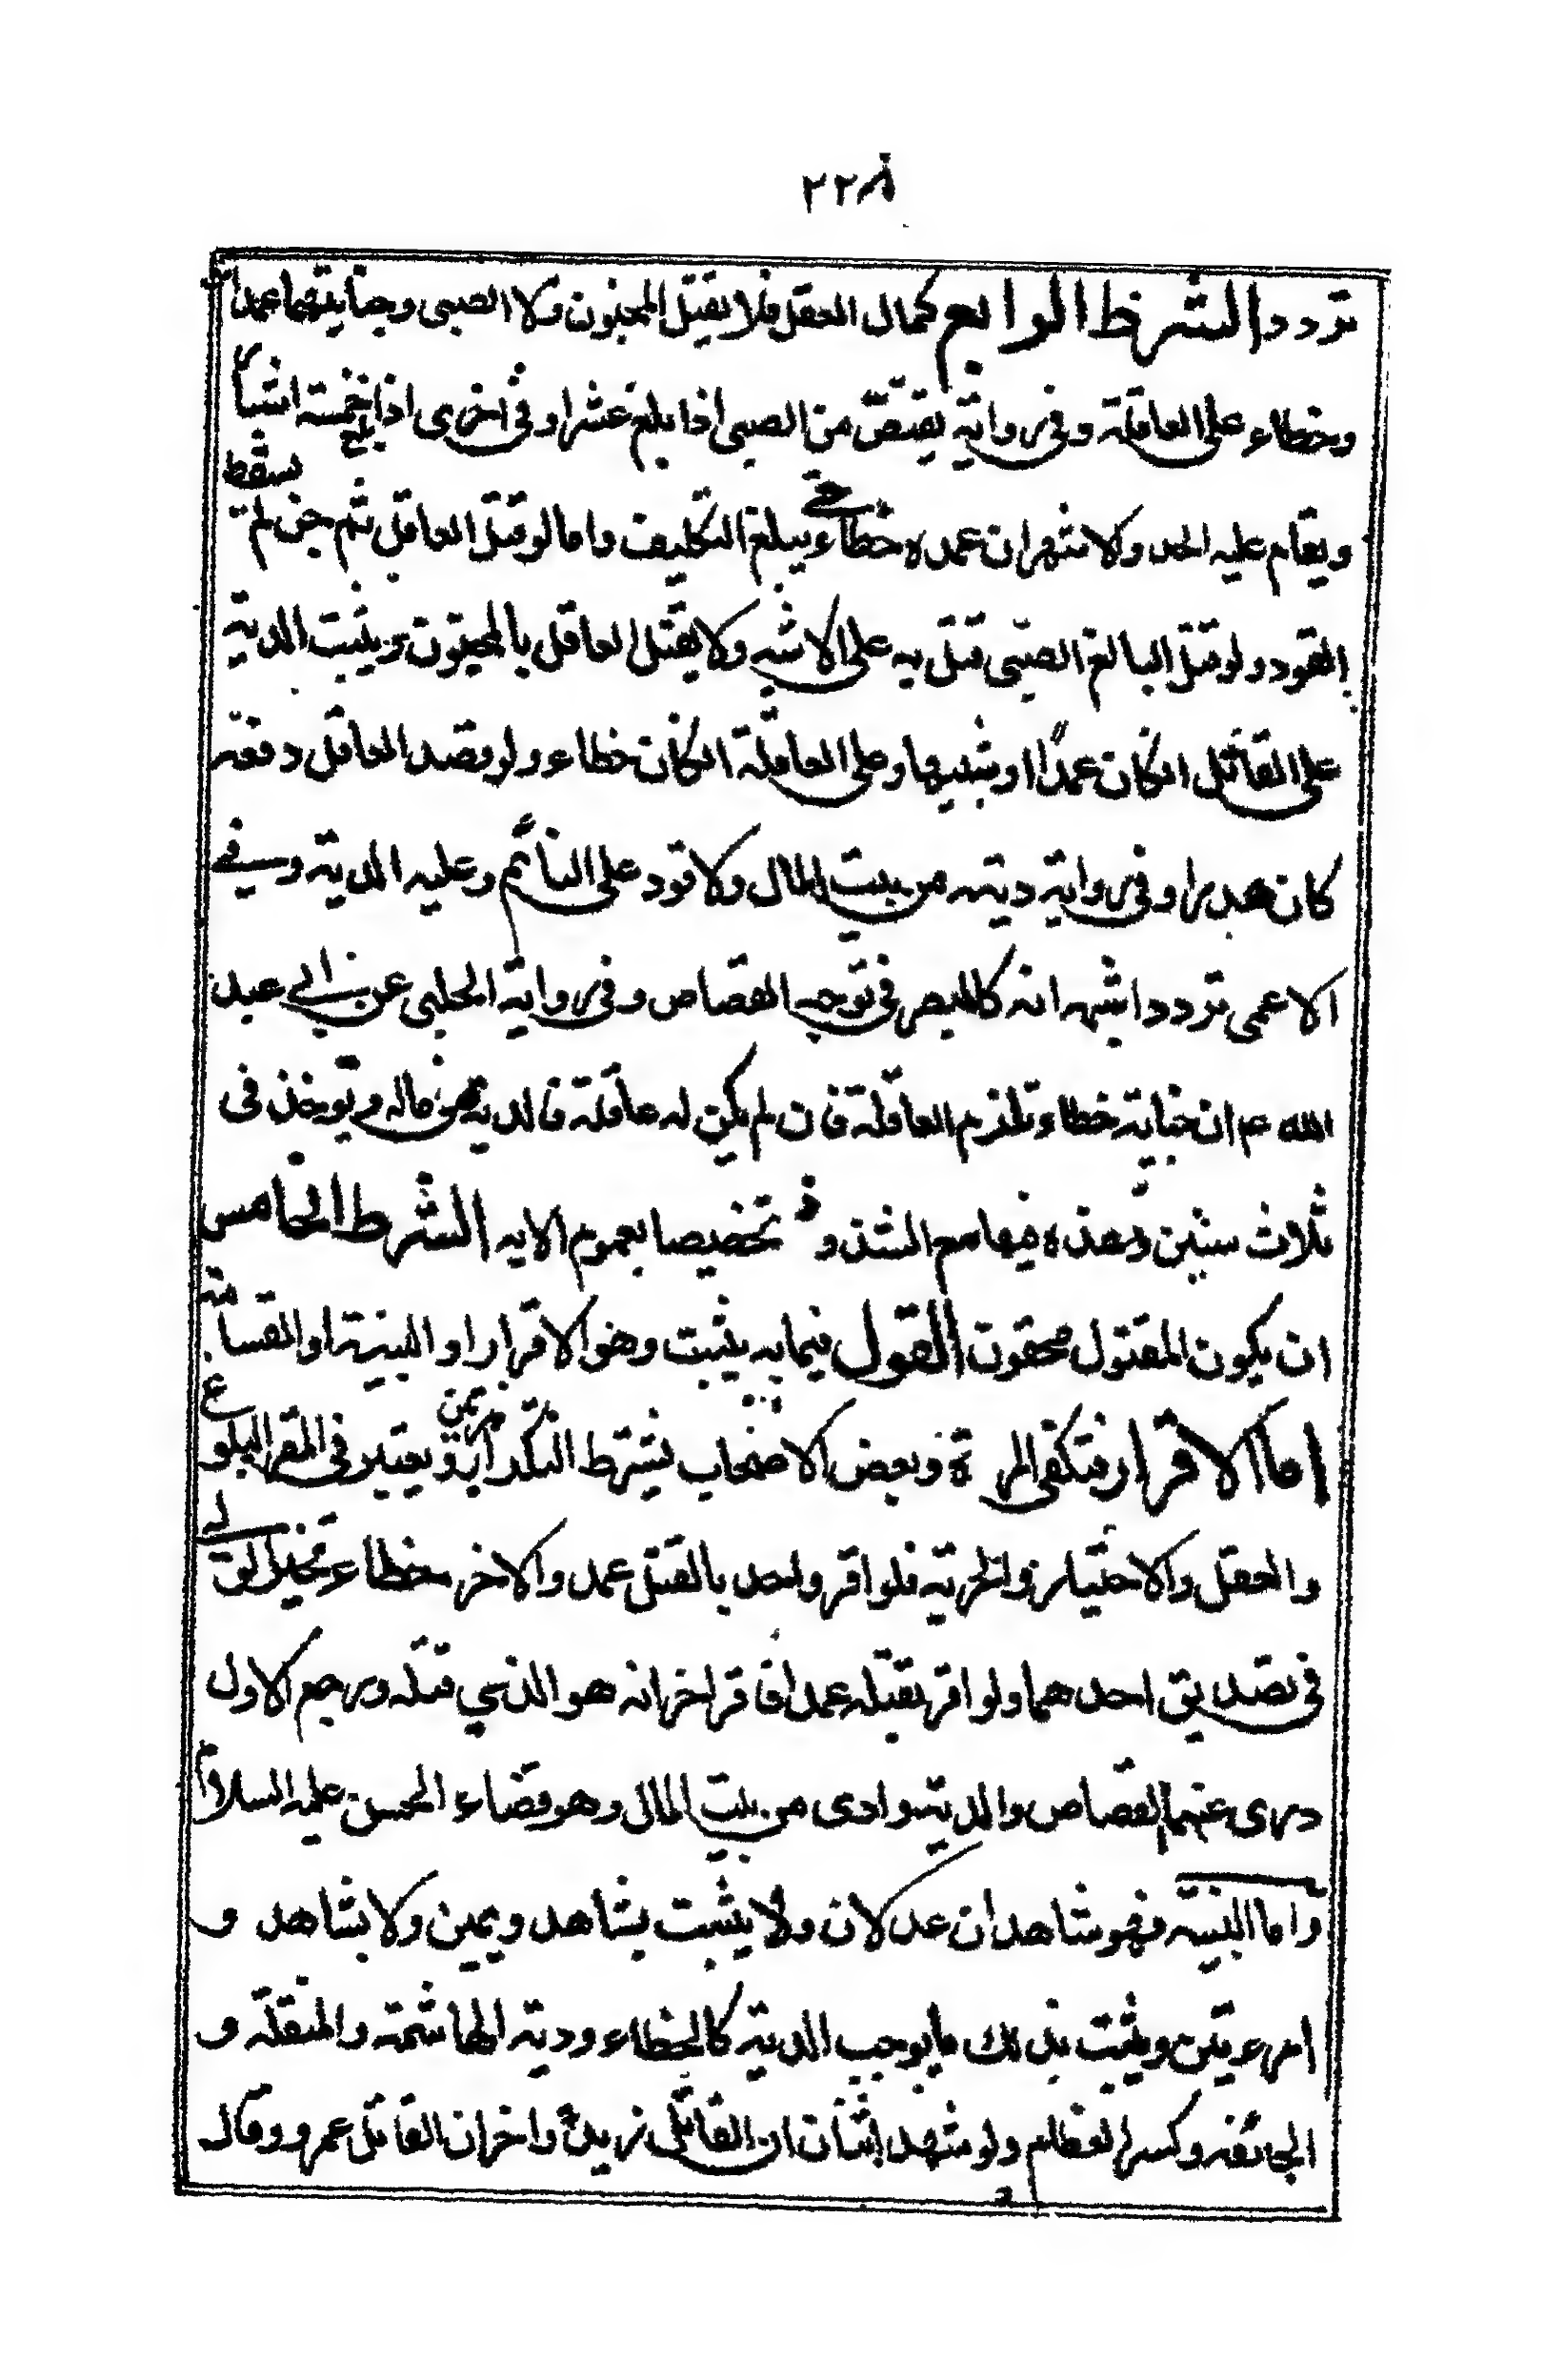 ٢٢٨
تردد الشرط الرابع كمال العقل فلا يقتل المجنون ولا الصبى وجنايتهما عمدا
وخطاء على العاقلة وفى رواية يقتص من الصبى اذا بلغ عشرا وفى اخرى اذا بلغ خمسة اشبار
ويقام عليه الحد والاشهر ان عمده خطاء حتى يبلغ التكليف واما لو قتل العاقل ثم جن لم يسقط
القود ولو قتل البالغ الصبى قتل به على الاشبه ولا يقتل العاقل بالمجنون ويثبت الدية
على القاتل انكان عمدا او شبيها وعلى العاقلة انكان خطاء ولو قصد العاقل دفعه
كان هدرا وفى رواية ديته من بيت المال ولا قود على النائم وعليه الدية وفى
الاعمى تردد اشبهه انه كالمبصر فى توجه القصاص وفى رواية الحلبى عن ابى عبد
الله ع ان جناية خطاء تلزم العاقلة فان لم يكن له عاقلة فالدية من ماله وتوخذ فى
ثلاث سنين وهذه فيها مع الشذوذ تخصيصا بعموم الايه الشرط الخامس
ان يكون المقتول محقون القول فيما به يثبت وهو الاقرار او البينة او القسامة
اما الاقرار فتكفى المرة وبعض الاصحاب يشترط التكرار مرتين ويعتبر فى المقر البلوغ
والعقل والاختيار والحرية فلو اقر واحد بالقتل عمد والاخر خطاء تخير الولى
فى تصديق احدهما ولو اقر بقتله عمدا فاقر اخر انه هو الذي قتله ورجع الاول
درى عنهما القصاص والدية وادى من بيت المال وهو قضاء الحسن عليه السلام
واما البينة فهو شاهدان عدلان ولا يثبت بشاهد ويمين ولا بشاهد و
امرءتين ويثبت بذلك ما يوجب الدية كالخطاء ودية الهاشمة والمنقلة و
الجائفه وكسر العظام ولو شهد اثنان ان القاتل زيد واخران القاتل عمرو وقال